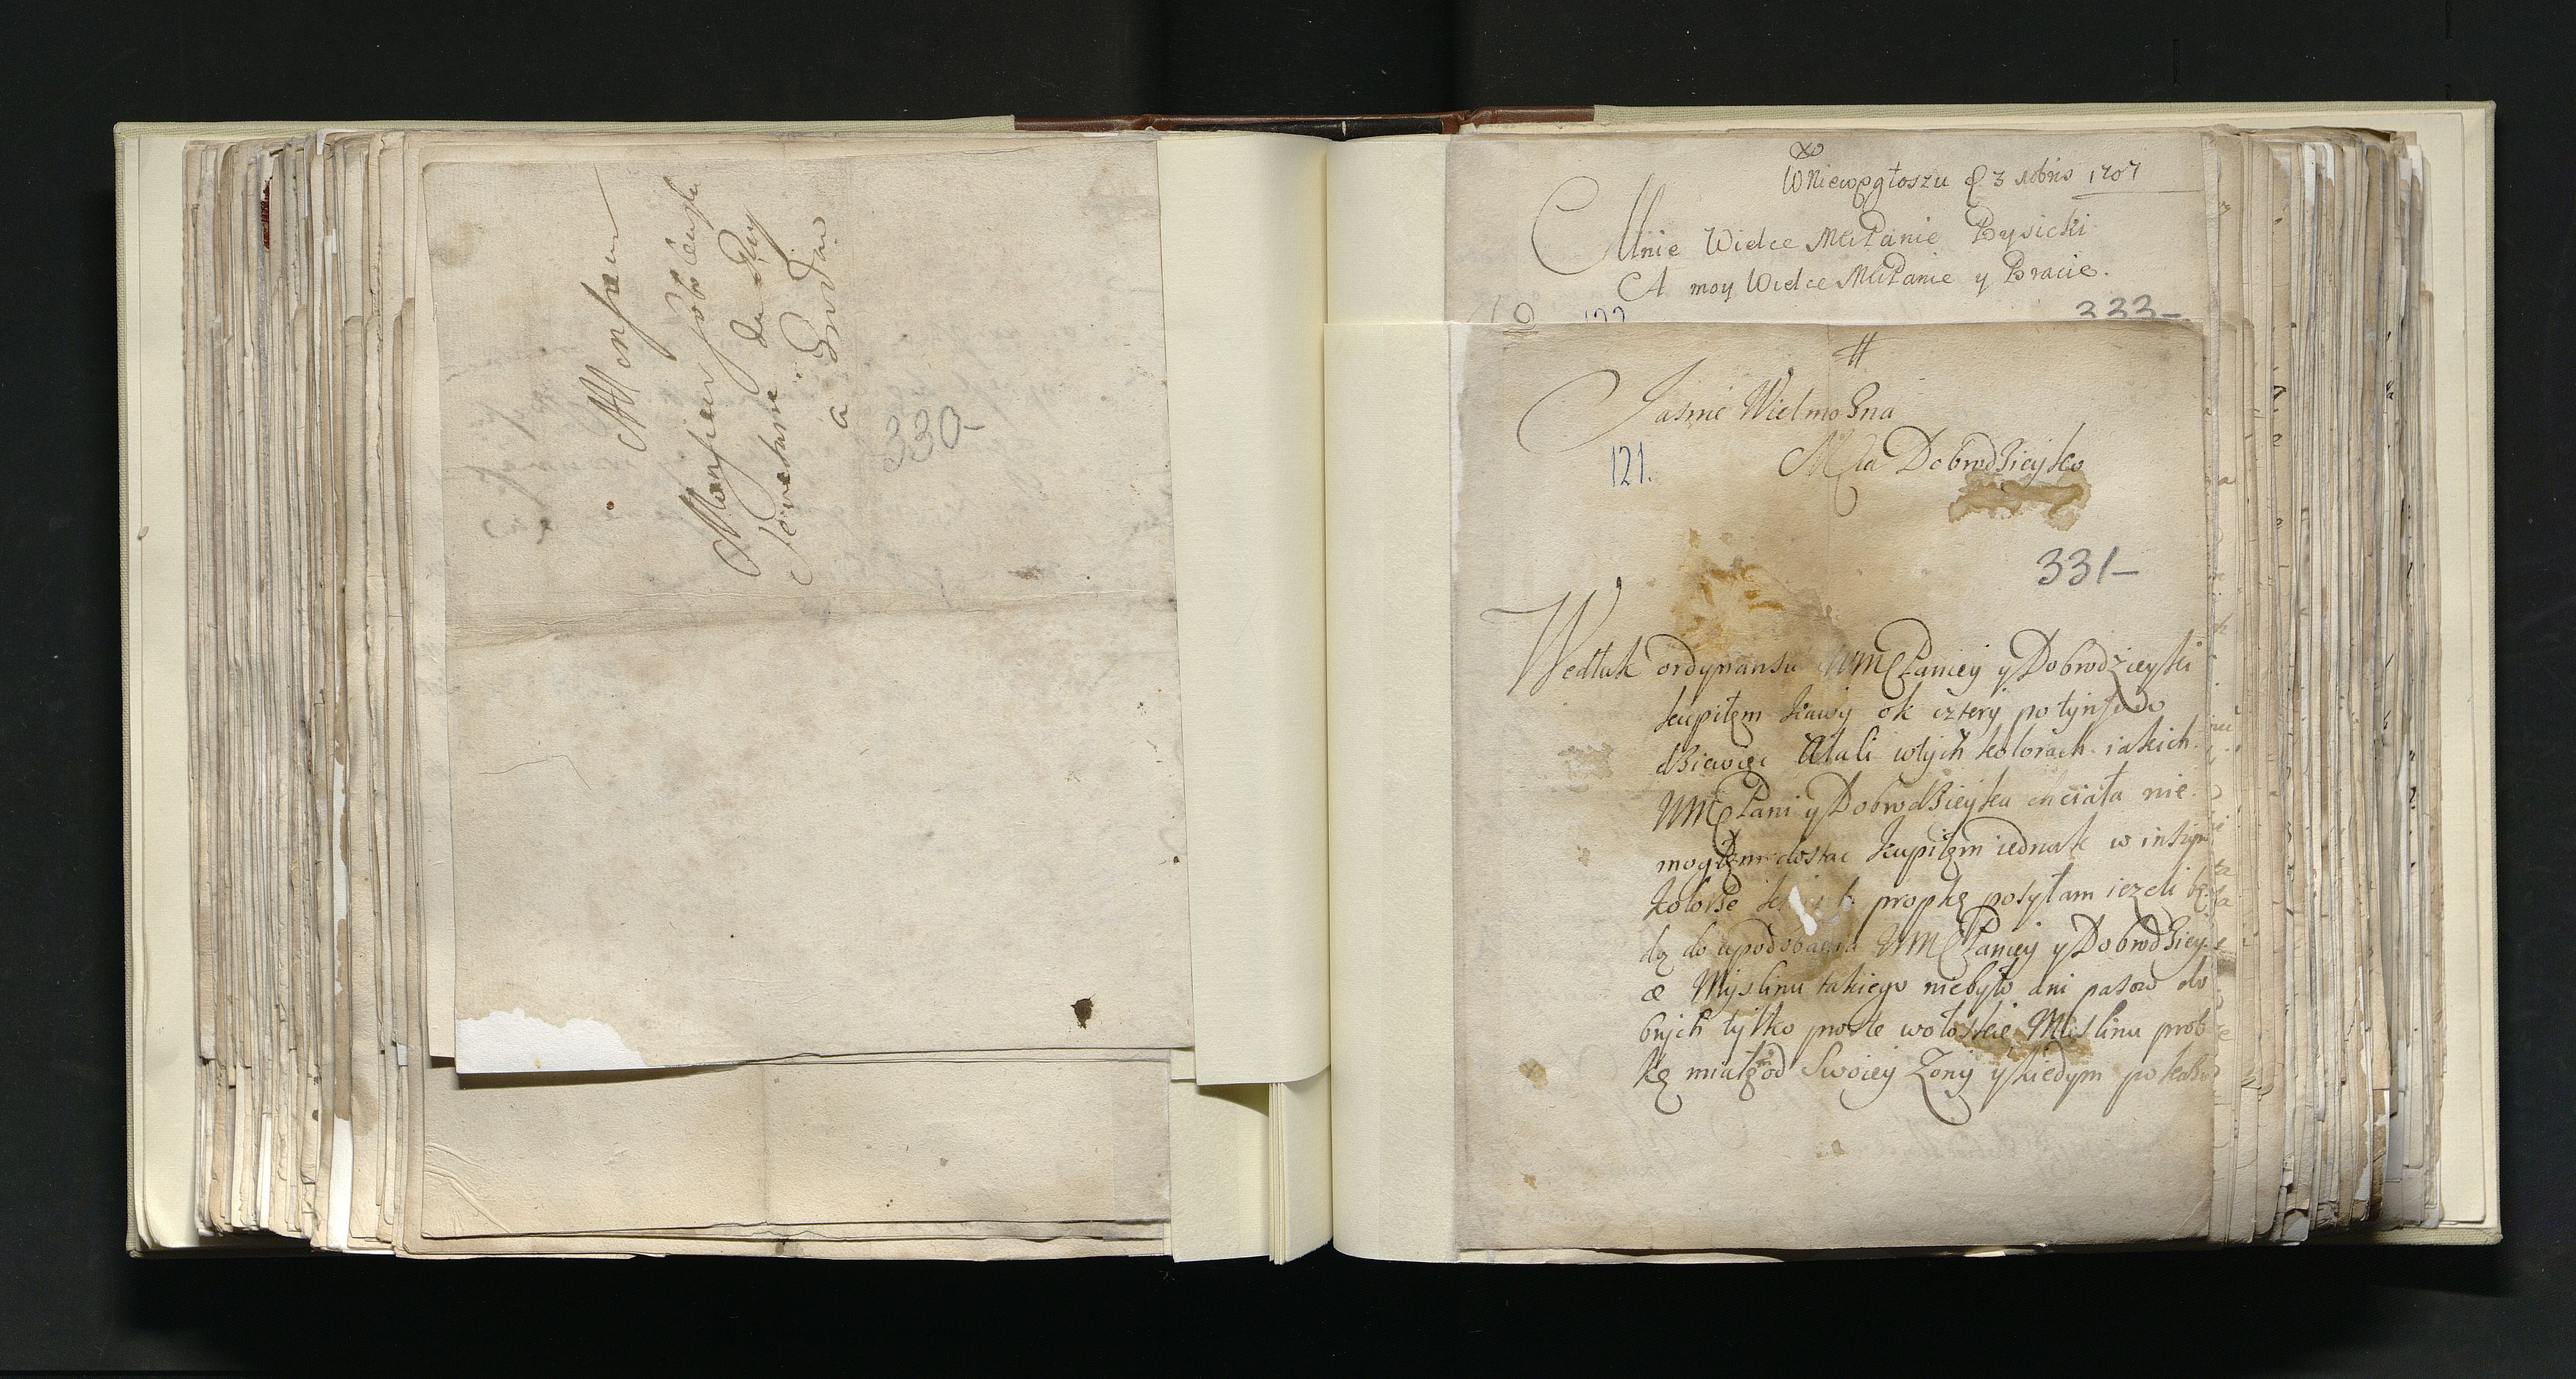 Monsieur
Monsieur
Secretaire du Roy
a
330-
Wniewęgłoszu d 3 1707
Mnie Wielce MłłPanie Rysicki
A moy Wielce MłłPanie y Bracie.
333-
#
Jasnie Wielmożna
Mcia Dobrodzieyko
121.
331-
Wedłuk ordynansu WMPaniey y Dobrodzieyki
kupiłem kawy ok cztery po tynfi do
dziewięc Atali wtych kolorach iakich
WMPani y Dobrodzieyka chciała nie
mogłem dostac kupiłem iednak w inszym
kolorze propkę posyłam iezeli bę
dą do upodobania WMPaniey y Dobrodziey
æ Myslinu takiego niebyło ani pasow do
brych tylko proste wołoskie Muslinu prob
kę miałem od Swoiey Zony y kiedym pokaza